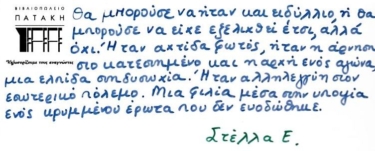 ΒΙΒΛΙΟΠΩΛΕΙΟ
ΠΑΤΑΚΗ
Ψηλαφίζουμε τους αναγνώστες
Θα μπορούσε να ήταν και ειδύλλιο, ή θα
μπορούσε να είχε εξελιχθεί έτσι, αλλά
όχι. Ήταν ακτίδα φωτός, ήταν η άρνηση
στο κατεστημένο και η αρχή ενός αγώνα,
μια ελπίδα στη δυστυχία. Ήταν αλληλεγγύη στον
εσωτερικό πόλεμο. Μια φιλία μέσα στην υποψία
ενός κρυμμένου έρωτα που δεν ευοδώθηκε.
Στέλλα Ε.